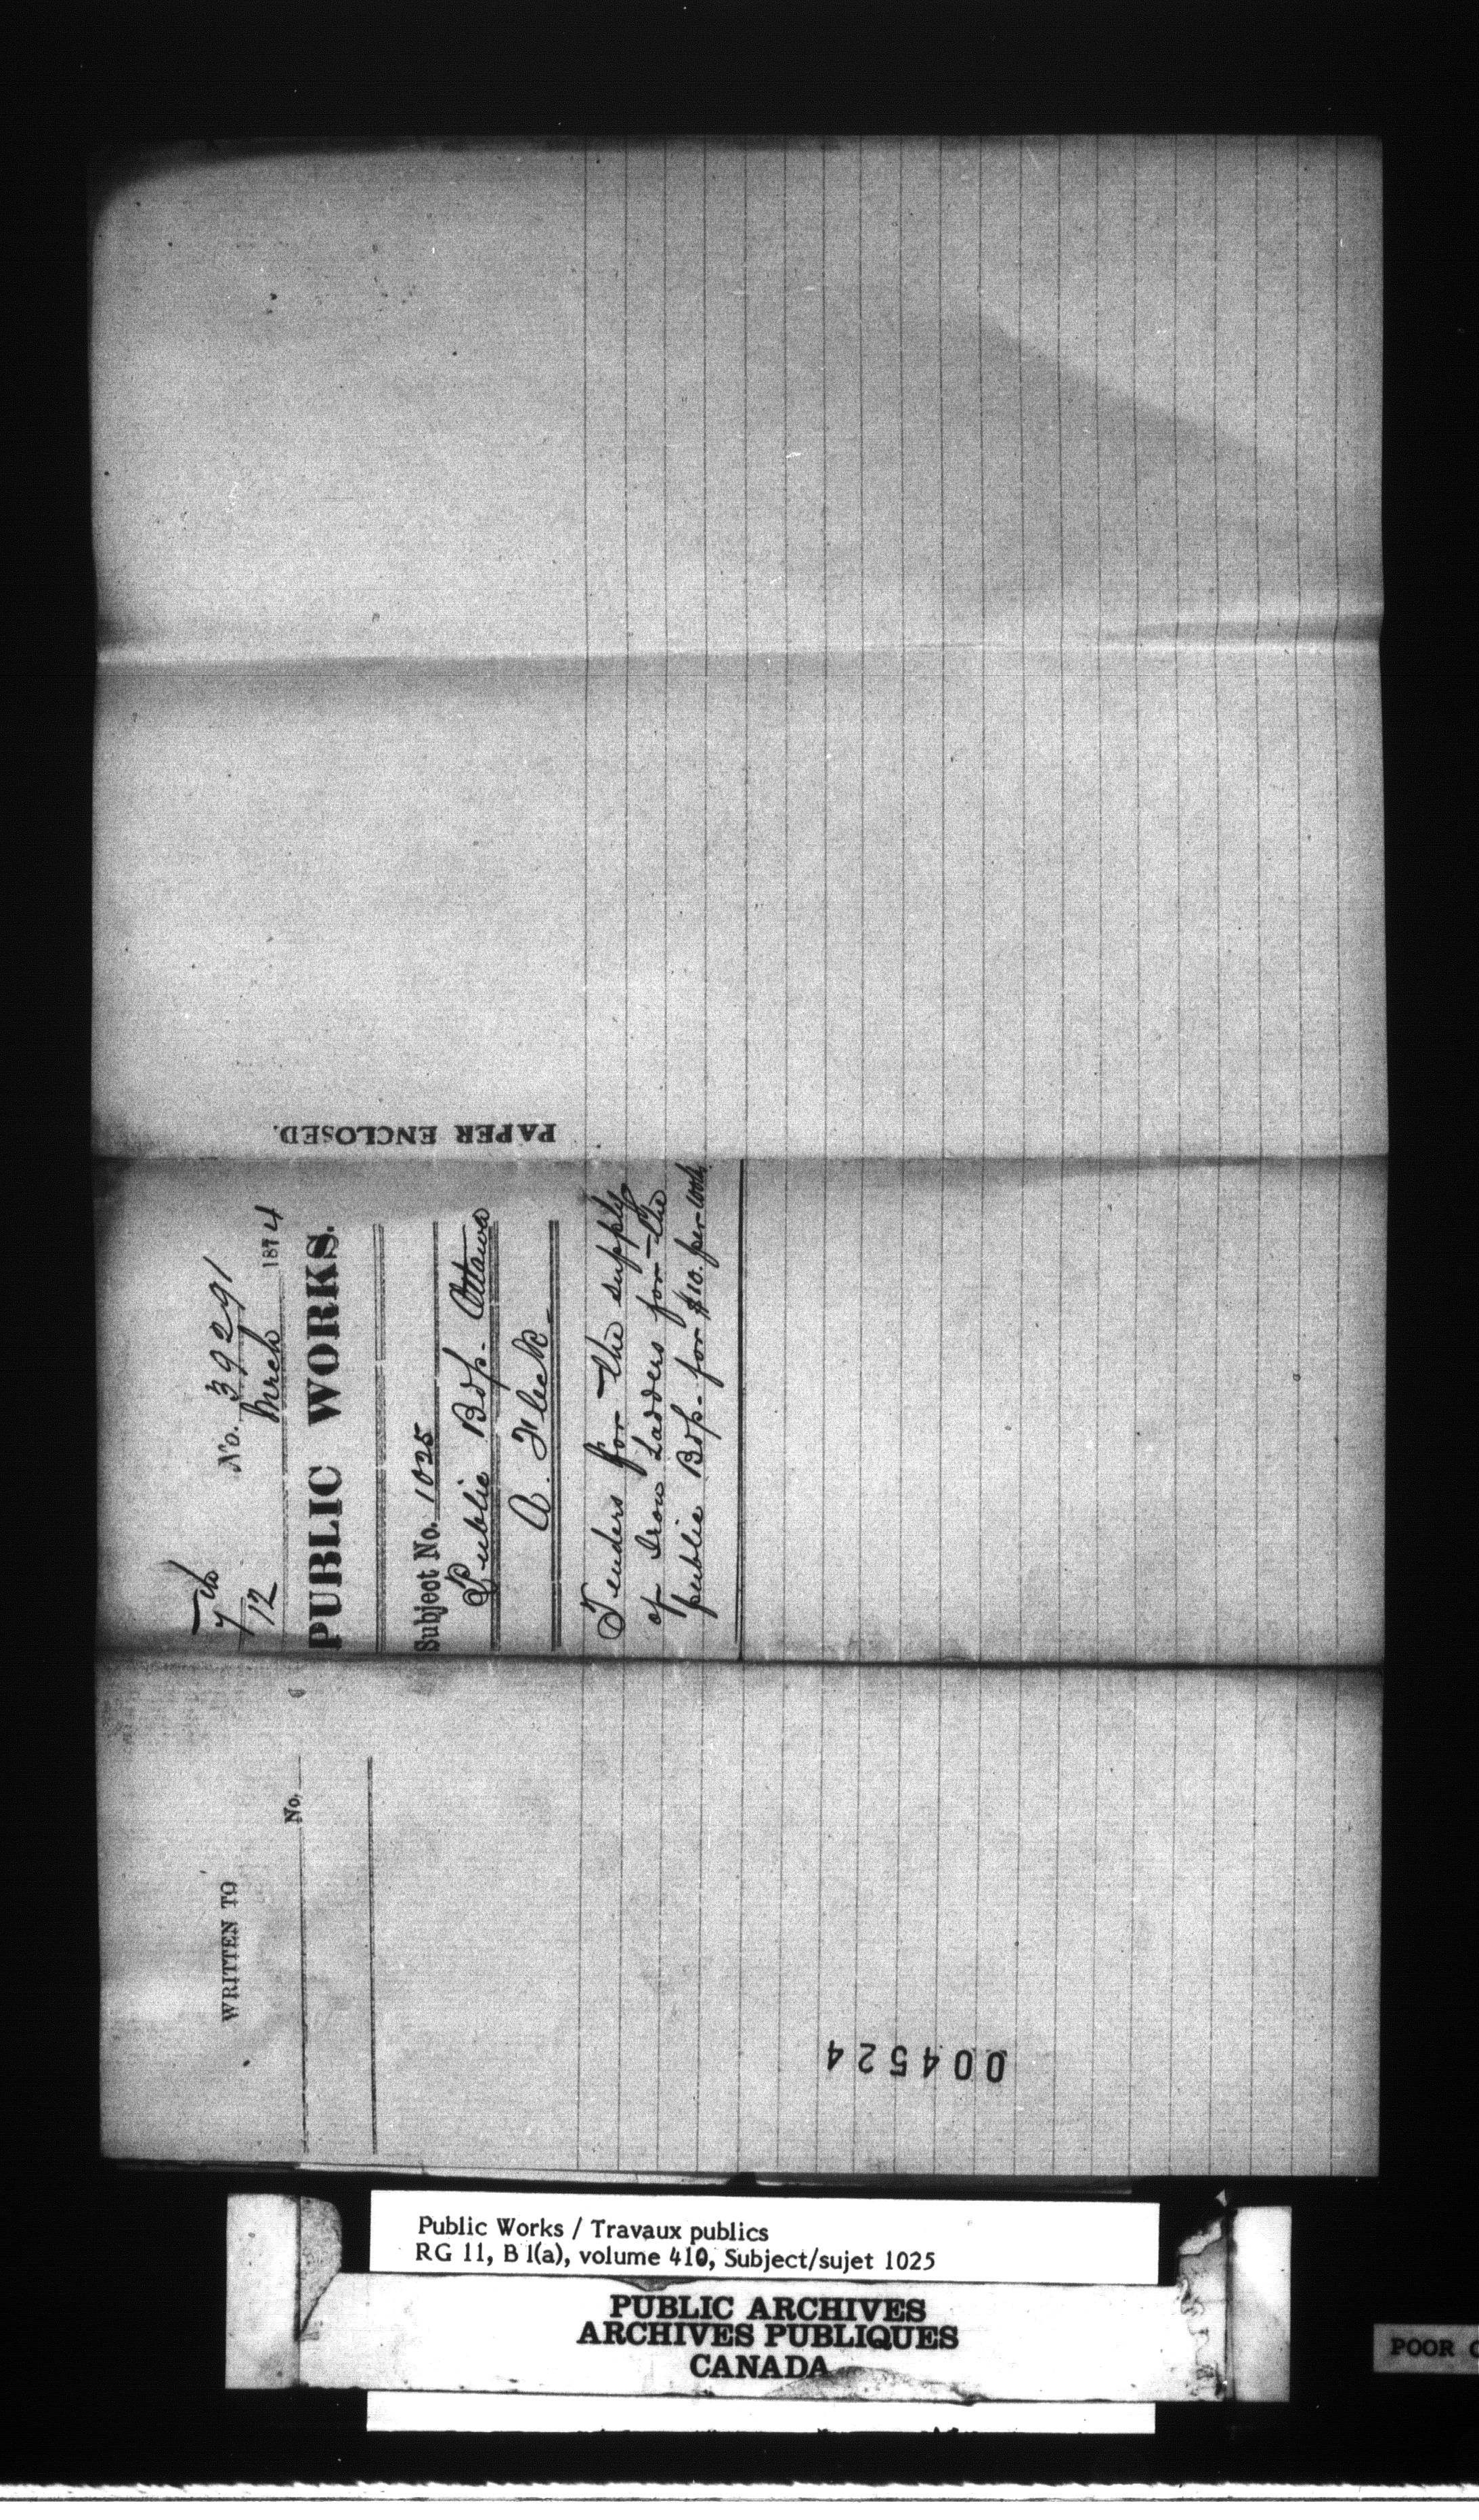 7th
12
No. 39291
March 1874
PUBLIC WORKS.
Subject No. 1025
Public Bdgs. Ottawa
A. Fleck
Tenders for the supply
of Iron Ladders for the
public Bdgs. for $10. per
PAPER ENCLOSED.
WRITTEN TO
No.
004524
Public Works / Travaux publics
RG 11, B 1(a), volume 410, Subject/sujet 1025
PUBLIC ARCHIVES
ARCHIVES PUBLIQUES
CANADA
POOR